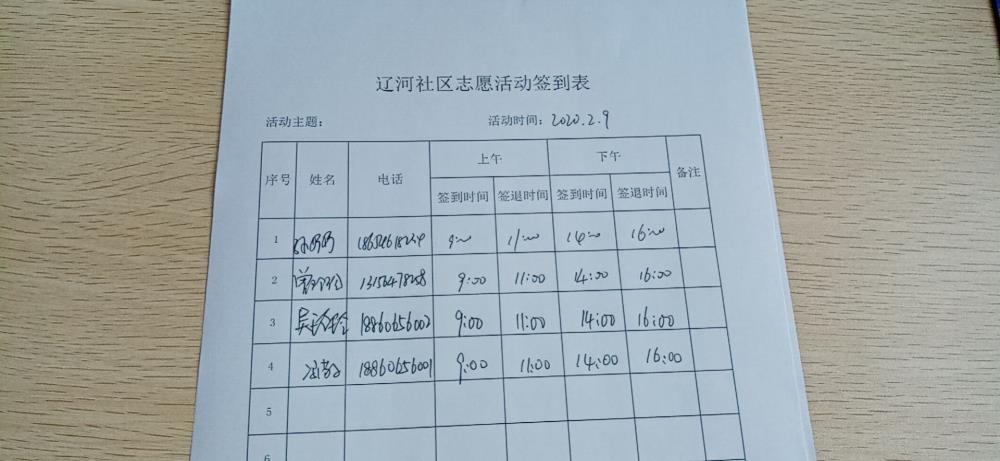 辽河社区志愿活动签到表
活动主题： 活动时间：2020.2.9
序号 姓名 电话 上午 下午 备注
签到时间 签退时间 签到时间 签退时间
1 9:00 11:00 14:00 16:00
2 9:00 11:00 14:00 16:00
3 吴玲玲 18860656002 9:00 11:00 14:00 16:00
4 18860656001 9:00 11:00 14:00 16:00
5
6